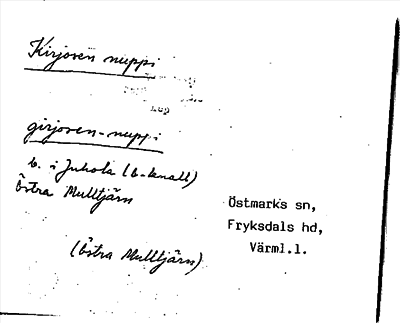 Kirjosen nuppi
girjosen-nuppi
b. i Juhola (b-knall)
Östra Mulltjärn
Östmarks sn,
Fryksdals hd,
Värml.l.
(Östra Mulltjärn)